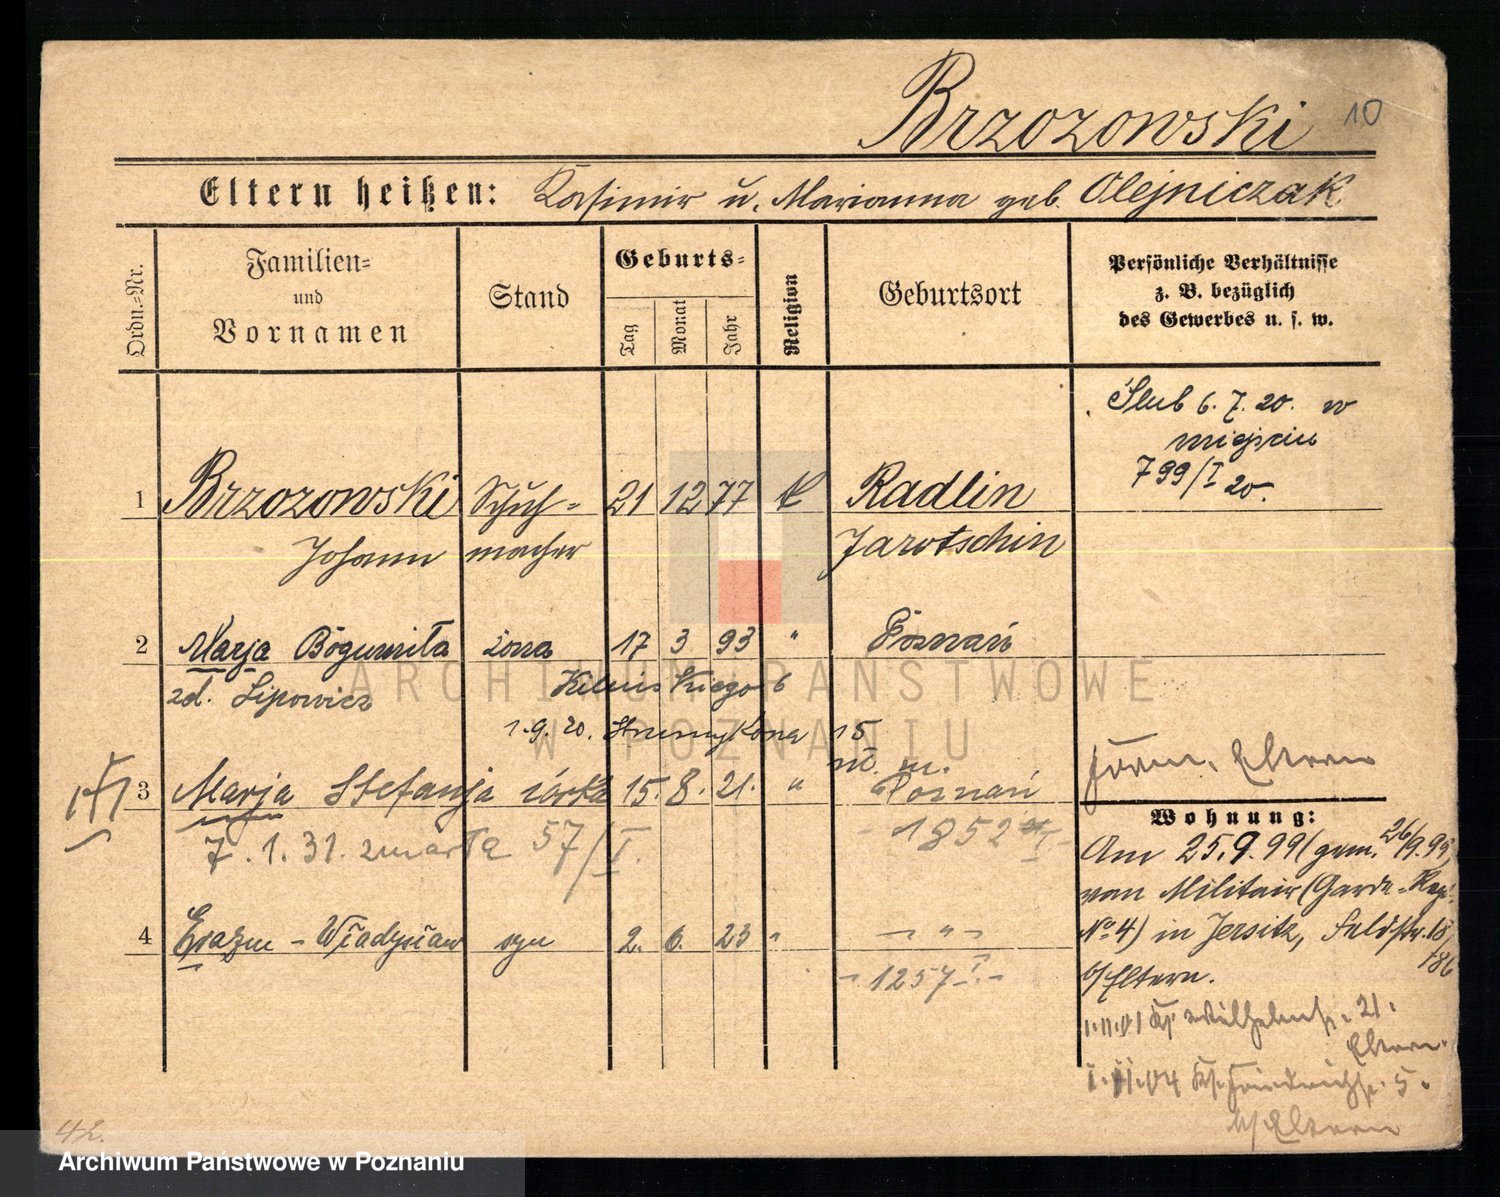 Brzozowski 10
Eltern heißen: Kasimir u. Marianna geb. Olejniczak
Ordn.=Nr.
Familien=
und
Vornamen
Stand
Geburts=
Tag
Monat
Jahr
Religion
Geburtsort
Persönliche Verhältnisse
z. B. bezüglich
des Gewerbes u. s. w.
Ślub 6. 7. 20. w
miejscu
799/I 20.
1 Brzozowski Schuh- 21 12 77 k Radlin
Johann macher Jarotschin
2 Marja Bogumiła żona 17 3 93 " Poznań
zd. Lipowicz
6
1.9.20. Strumykowa 15
m. m.
3 Marja Stefanja córka 15. 8. 21. " Poznań
7. 1. 31. zmarła 57/I. 1852
4 Erazm - Władysław syn 2. 6. 23 " - " -
- 1257 I. -
Eltern
Wohnung:
Am 25.9.99 (gem. 26/9.99)
vom Militair (Garde-Reg.
No 4) in Jersitz, Feldstr. 18/
b/Eltern.
Wilhelmstr. 21.
Eltern.
Friedrichstr. 5.
b/Eltern
42.
ARCHIWUM PAŃSTWOWE
W POZNANIU
Archiwum Państwowe w Poznaniu